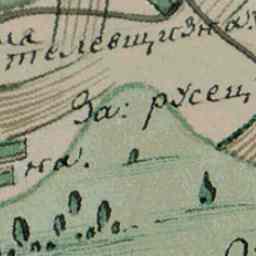 ма
телевщизна:
За: русец
на.